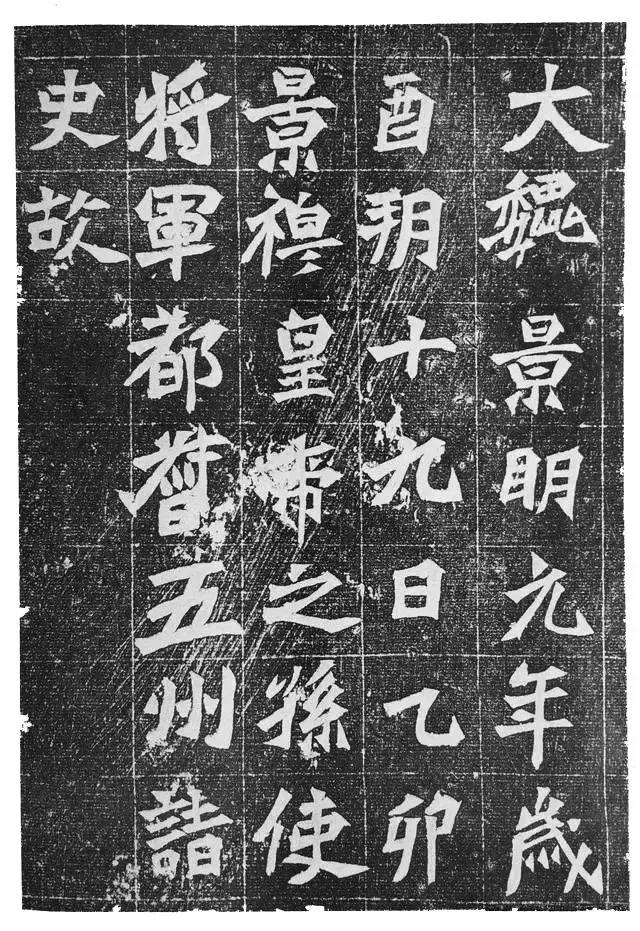 大魏景明元年歲
酉朔十九日乙卯
景穆皇帝之孫使
將軍都督五州諸
史故